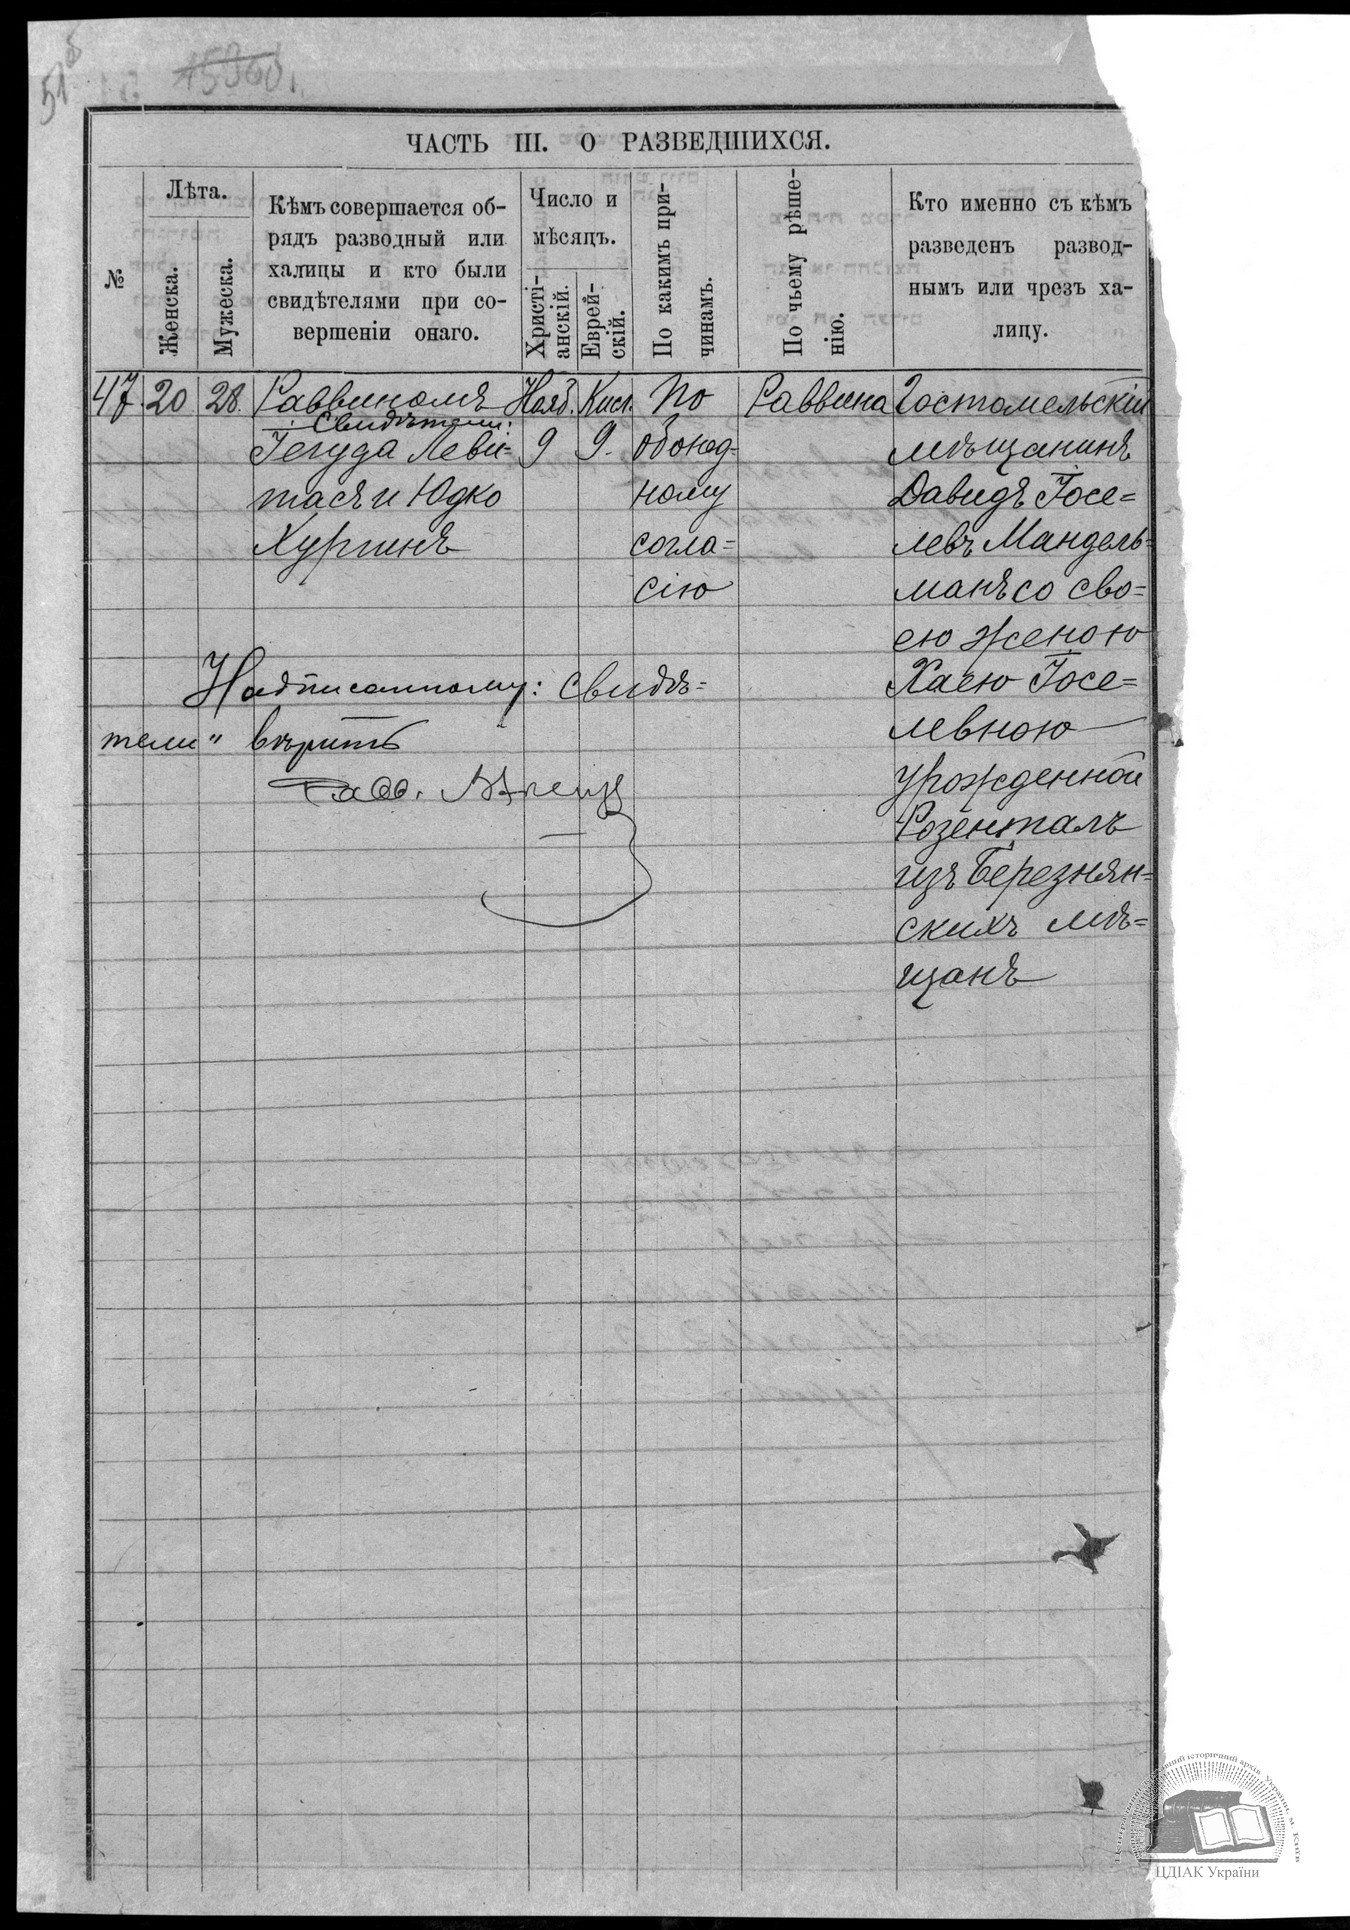 51 б
15960
ЧАСТЬ III. О РАЗВЕДШИХСЯ.
№
Лѣта.
Женска.
Мужеска.
Кѣмъ совершается об-
рядъ разводный или
халицы и кто были
свидѣтелями при со-
вершеніи онаго.
Число и
мѣсяцъ.
Христі-
анскій.
Еврей-
скій.
По какимъ при-
чинамъ.
По чьему рѣше-
нію.
Кто именно съ кѣмъ
разведенъ развод-
нымъ или чрезъ ха-
лицу.
47. 20 28.
Раввиномъ
Свидѣтели:
Іегуда Леви-
тасъ и Юдко
Хургинъ
Нояб.
9
Кисл.
9.
По
обоюд-
ному
согла=
сію
Раввина
Гостомельскій
мѣщанинъ
Давидъ Іосе=
левъ Мандель=
манъ со сво=
ею женою
Хаею Іосе=
левною
урожденной
Розенталь
изъ Березнян=
скихъ мѣ=
щанъ
Надписанному: свидѣ=
тели" вѣрить
Равв.
ЦДІАК України